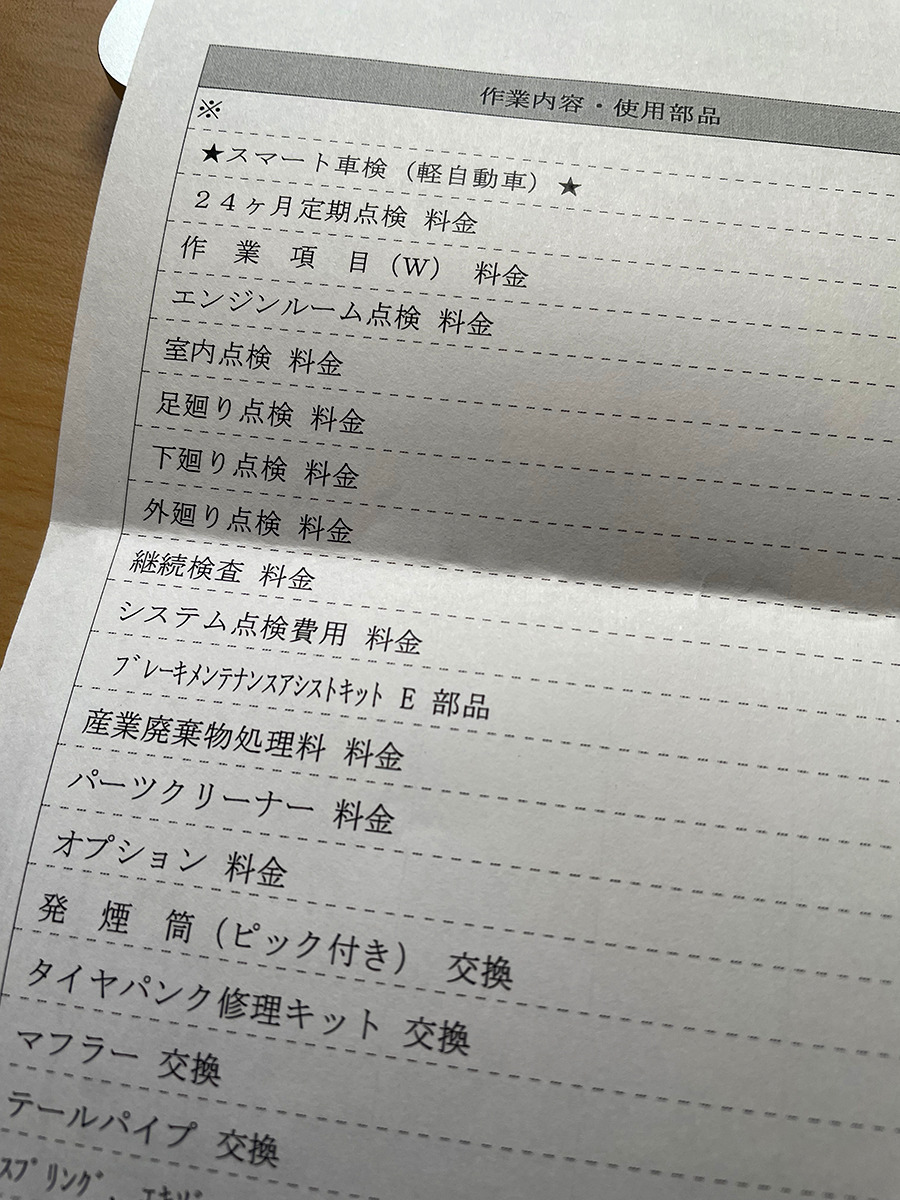 作業内容・使用部品
※
★スマート車検（軽自動車）★
２４ヶ月定期点検 料金
作　業　項　目（W） 料金
エンジンルーム点検 料金
室内点検 料金
足廻り点検 料金
下廻り点検 料金
外廻り点検 料金
継続検査 料金
システム点検費用 料金
ﾌﾞﾚｰｷﾒﾝﾃﾅﾝｽｱｼｽﾄｷｯﾄ E 部品
産業廃棄物処理料 料金
パーツクリーナー 料金
オプション 料金
発　煙　筒（ピック付き） 交換
タイヤパンク修理キット 交換
マフラー 交換
テールパイプ 交換
ｽﾌﾟﾘﾝｸﾞ